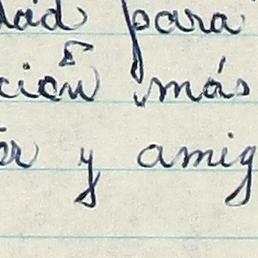 dad para
ción más
er y amig